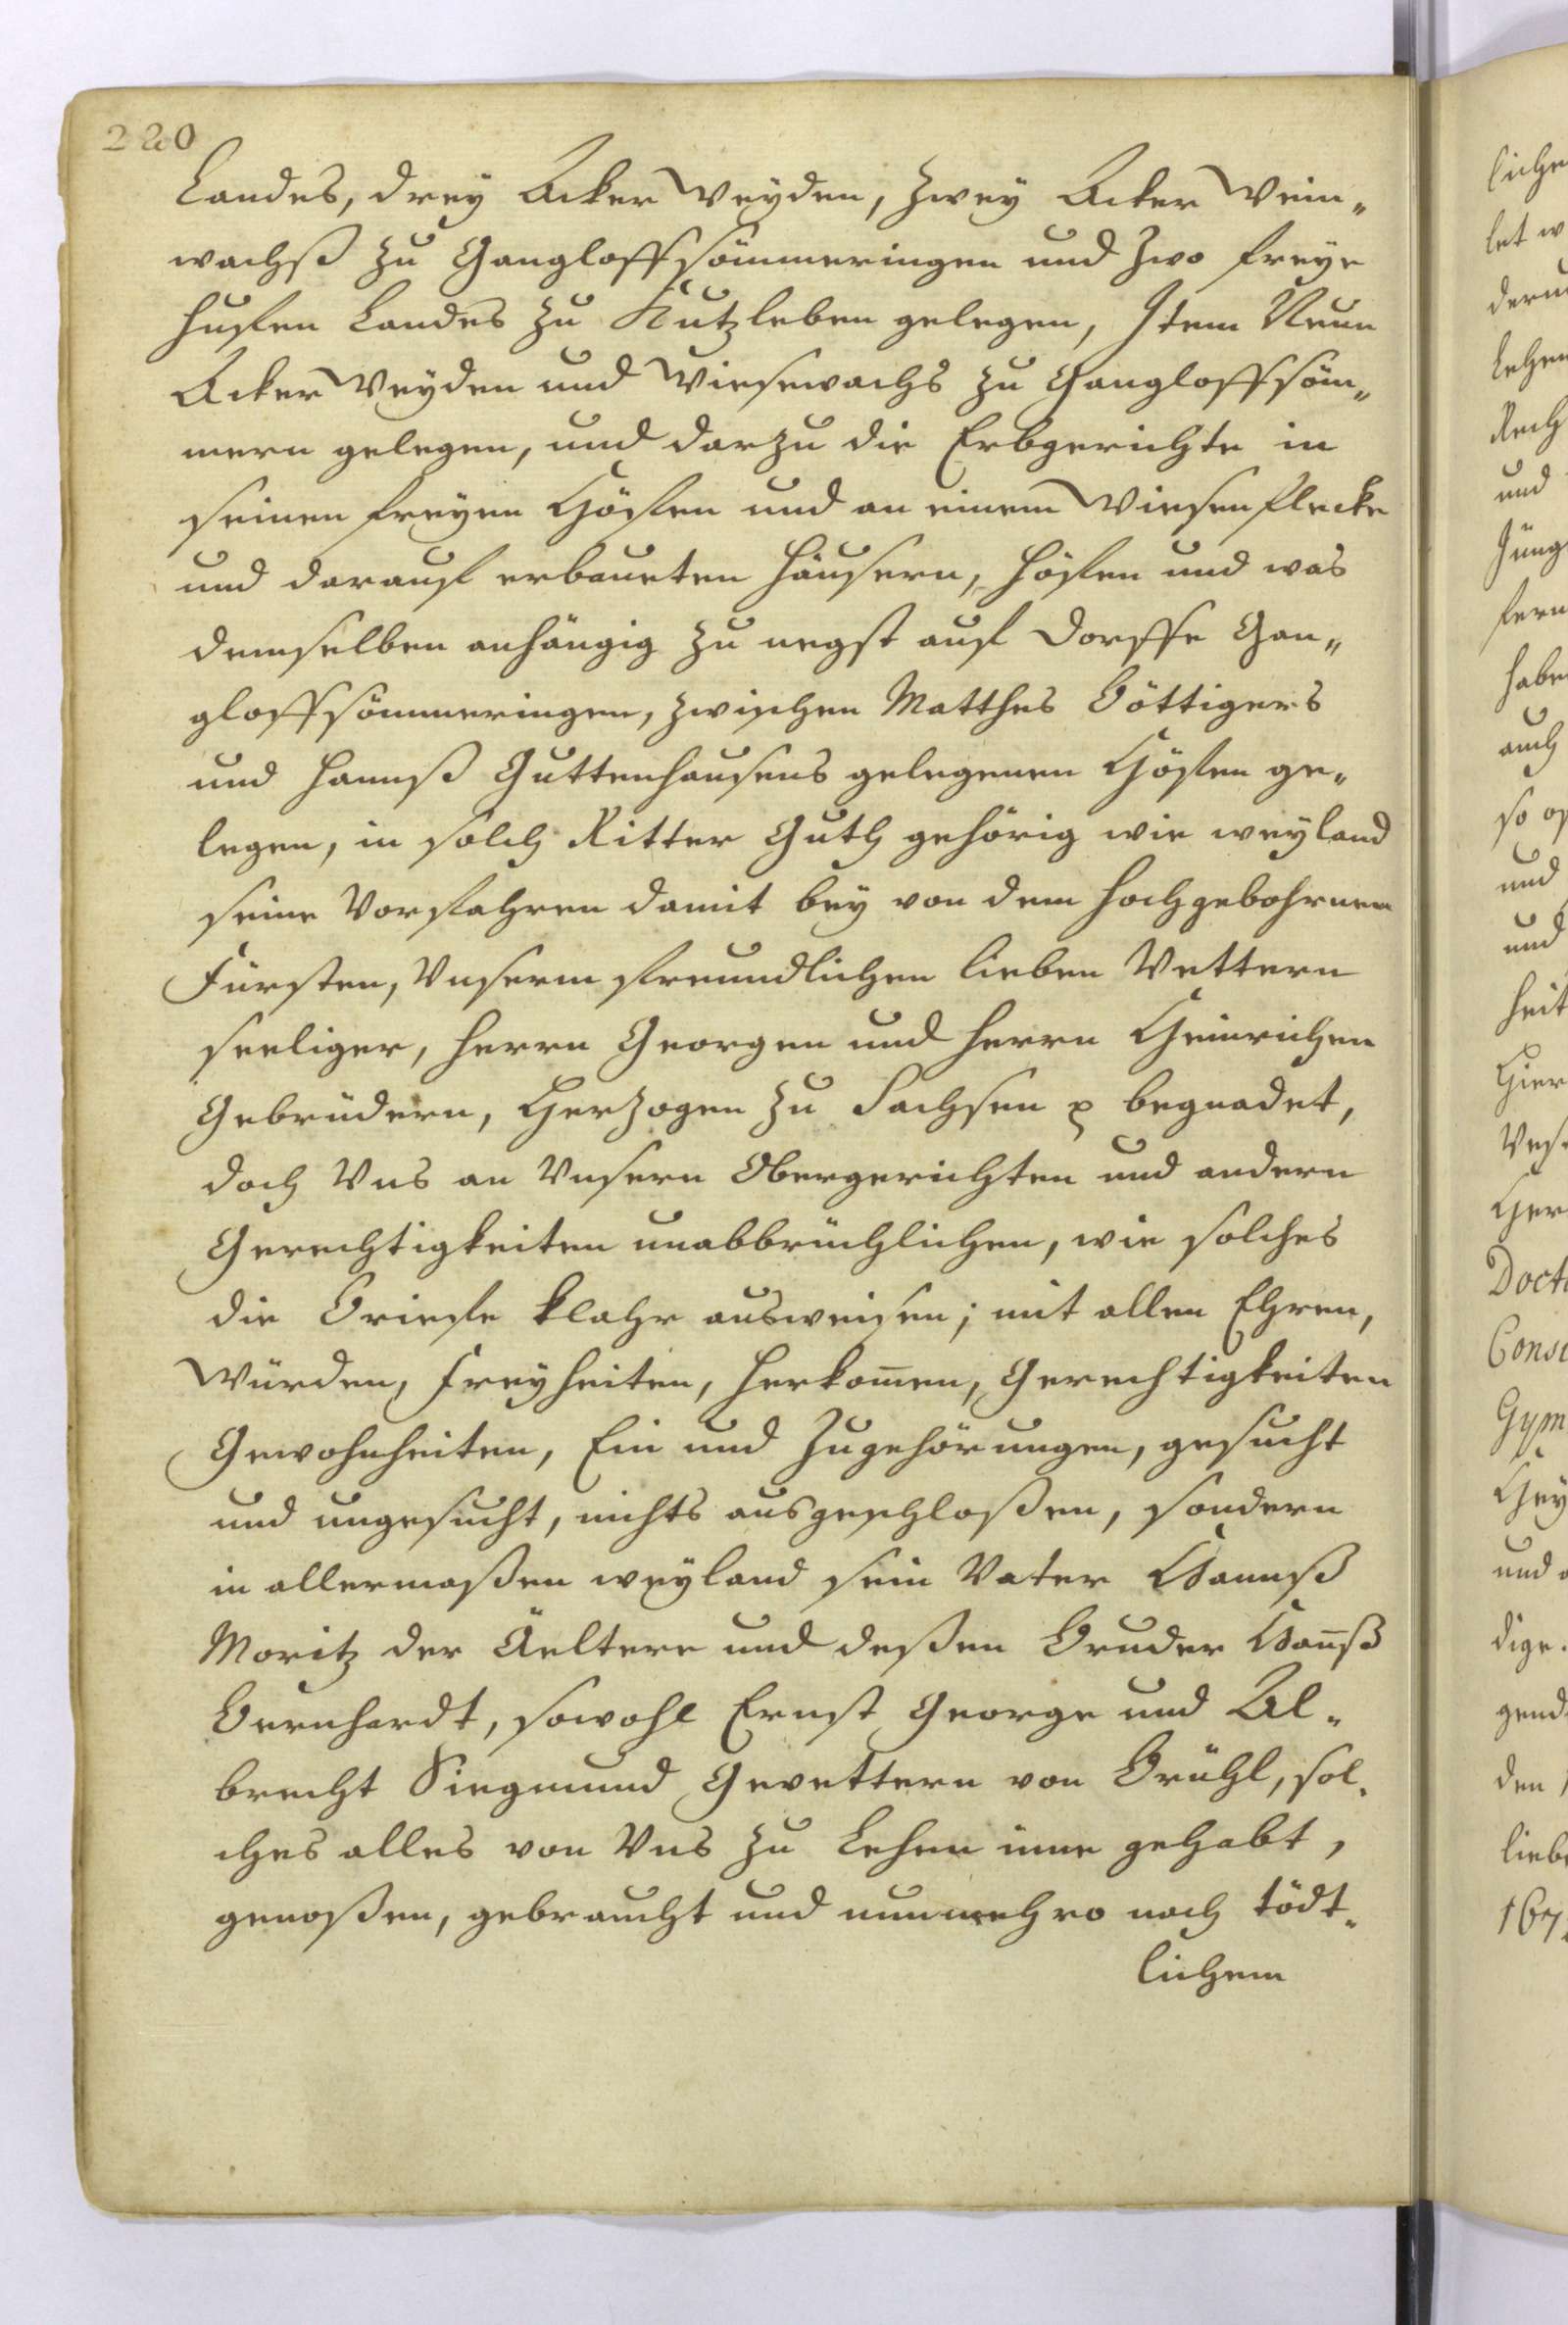 220
Landes, drey Acker Weyden, zwey Acker Wein„
wachß zu Gangloffsömmeringen und zwo freye
Hufen Landes zu Kutzleben gelegen, Item Neun
Acker Weyden und Wiesewachs zu Gangloffsöm„
mern gelegen, und darzu die Erbgerichte in
seinen freyen Höfen und an einem Wiesenflecke
und darauf erbaueten Häusern, Höfen und was
demselben anhängig zu negst auf Dorffe Gan„
gloffsömmeringen, zwischen Matthes Böttigers
und Hannß Guttenhausens gelegenen Höfen ge„
legen, in solch Ritter Guth gehörig wie weyland
seine Vorfahren damit bey von dem Hochgebohrnen
Fürsten, Unserm freundlichen lieben Vettern
seeliger, Herrn Georgen und Herrn Heinrichen
Gebrüdern, Herzogen zu Sachsen p begnadet,
doch Uns an Unsern Obergerichten und andern
Gerechtigkeiten unabbrüchlichen, wie solches
die Briefe klahr ausweisen; mit allen Ehren,
Würden, Freyheiten, Herkom̅en, Gerechtigkeiten
Gewohnheiten, Ein und Zugehörungen, gesucht
und ungesucht, nichts ausgeschloßen, sondern
in allermaßen weyland sein Vater Hannß
Moritz der Äeltere und deßen Bruder Han̅ß
Bernhardt, sowohl Ernst George und Al„
brecht Siegmund Gevettern von Brühl, sol„
ches alles von Uns zu Lehen inne gehabt,
genoßen, gebraucht und nunmehro nach tödt„
lichem
liche
let w
deru
Lehen
Rech
und
Jüng
fern
habe
auch
so o
und
und
heit
Hier
Ves
Her
Doct
Cons
Gym
Hey
und
dige
gend
den
lieb
167